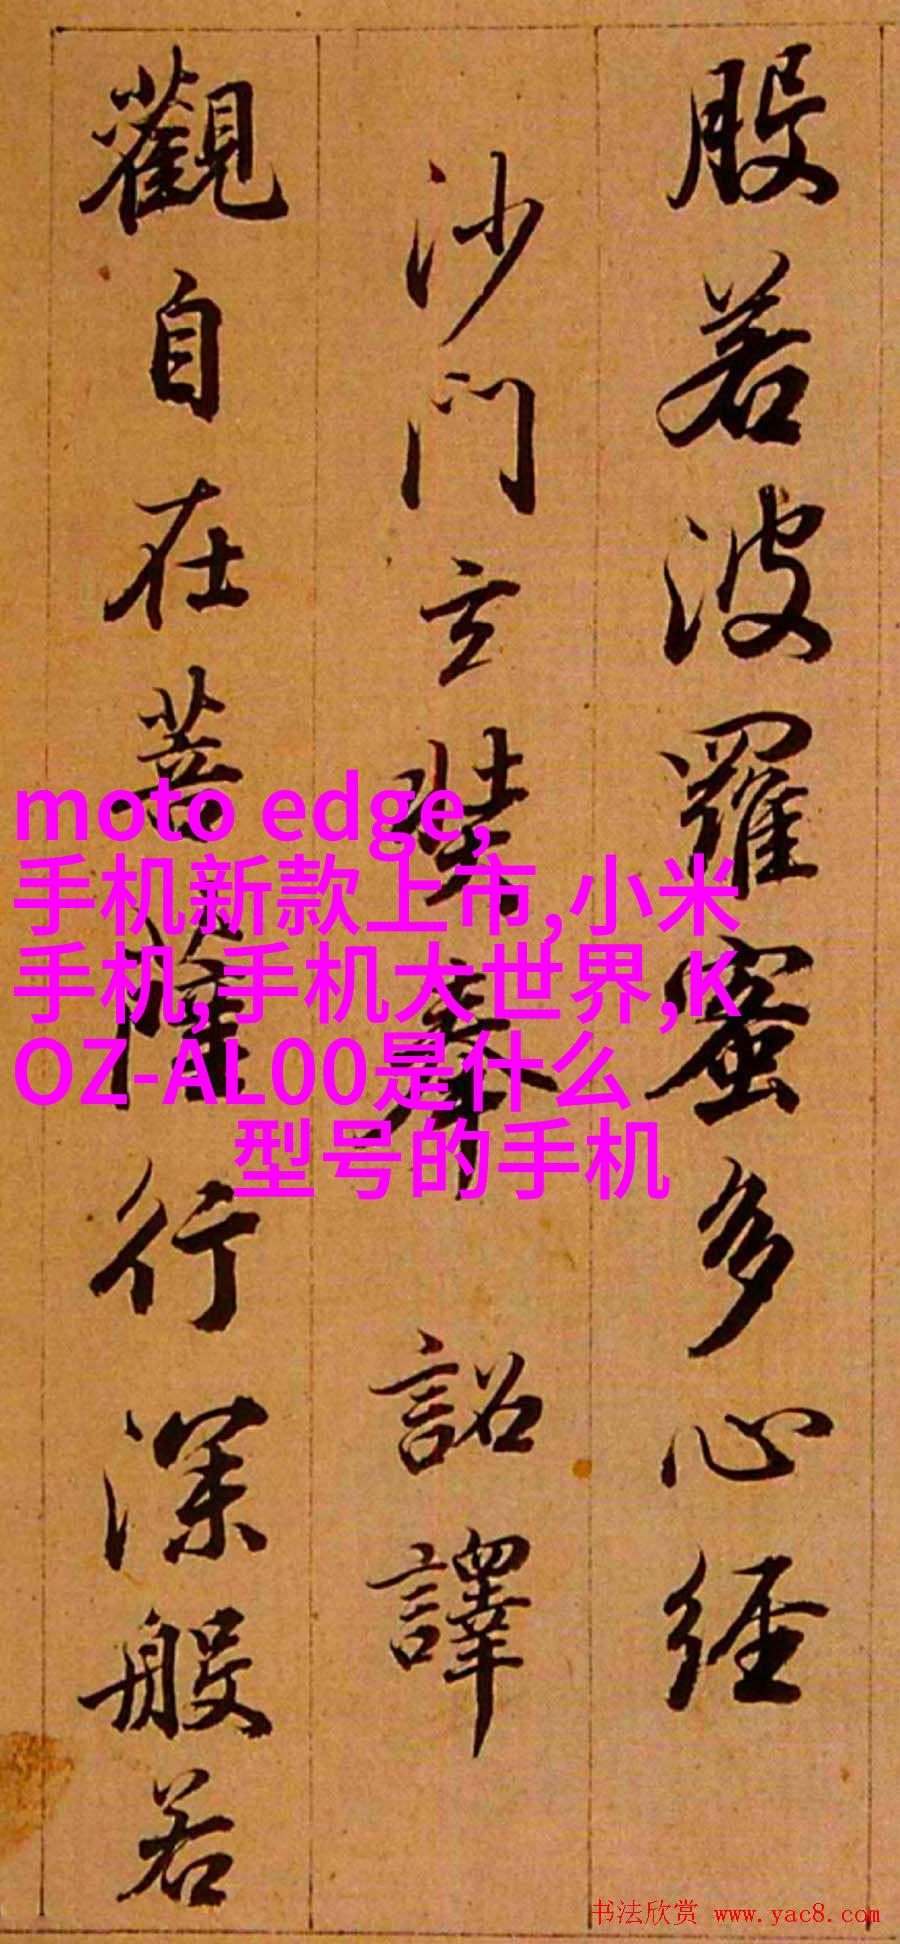 般若波羅蜜多心經
沙門玄奘奉 詔譯
觀自在菩薩行深般若
moto edge,
手机新款上市,小米
手机,手机大世界,K
OZ-AL00是什么
型号的手机
书法欣赏 www.yac8.com